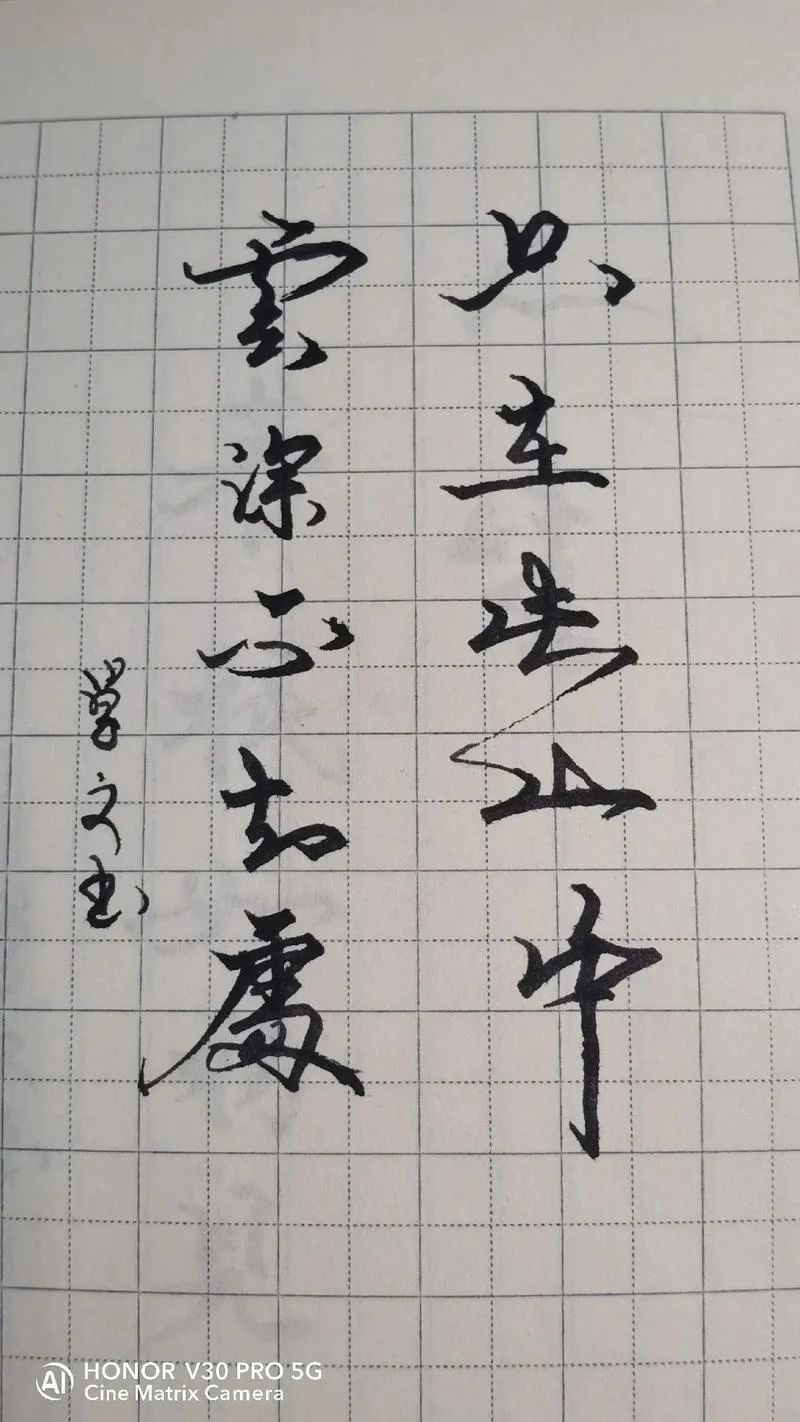 只在此山中
雲深不知處
草文书
HONOR V30 PRO 5G
Cine Matrix Camera